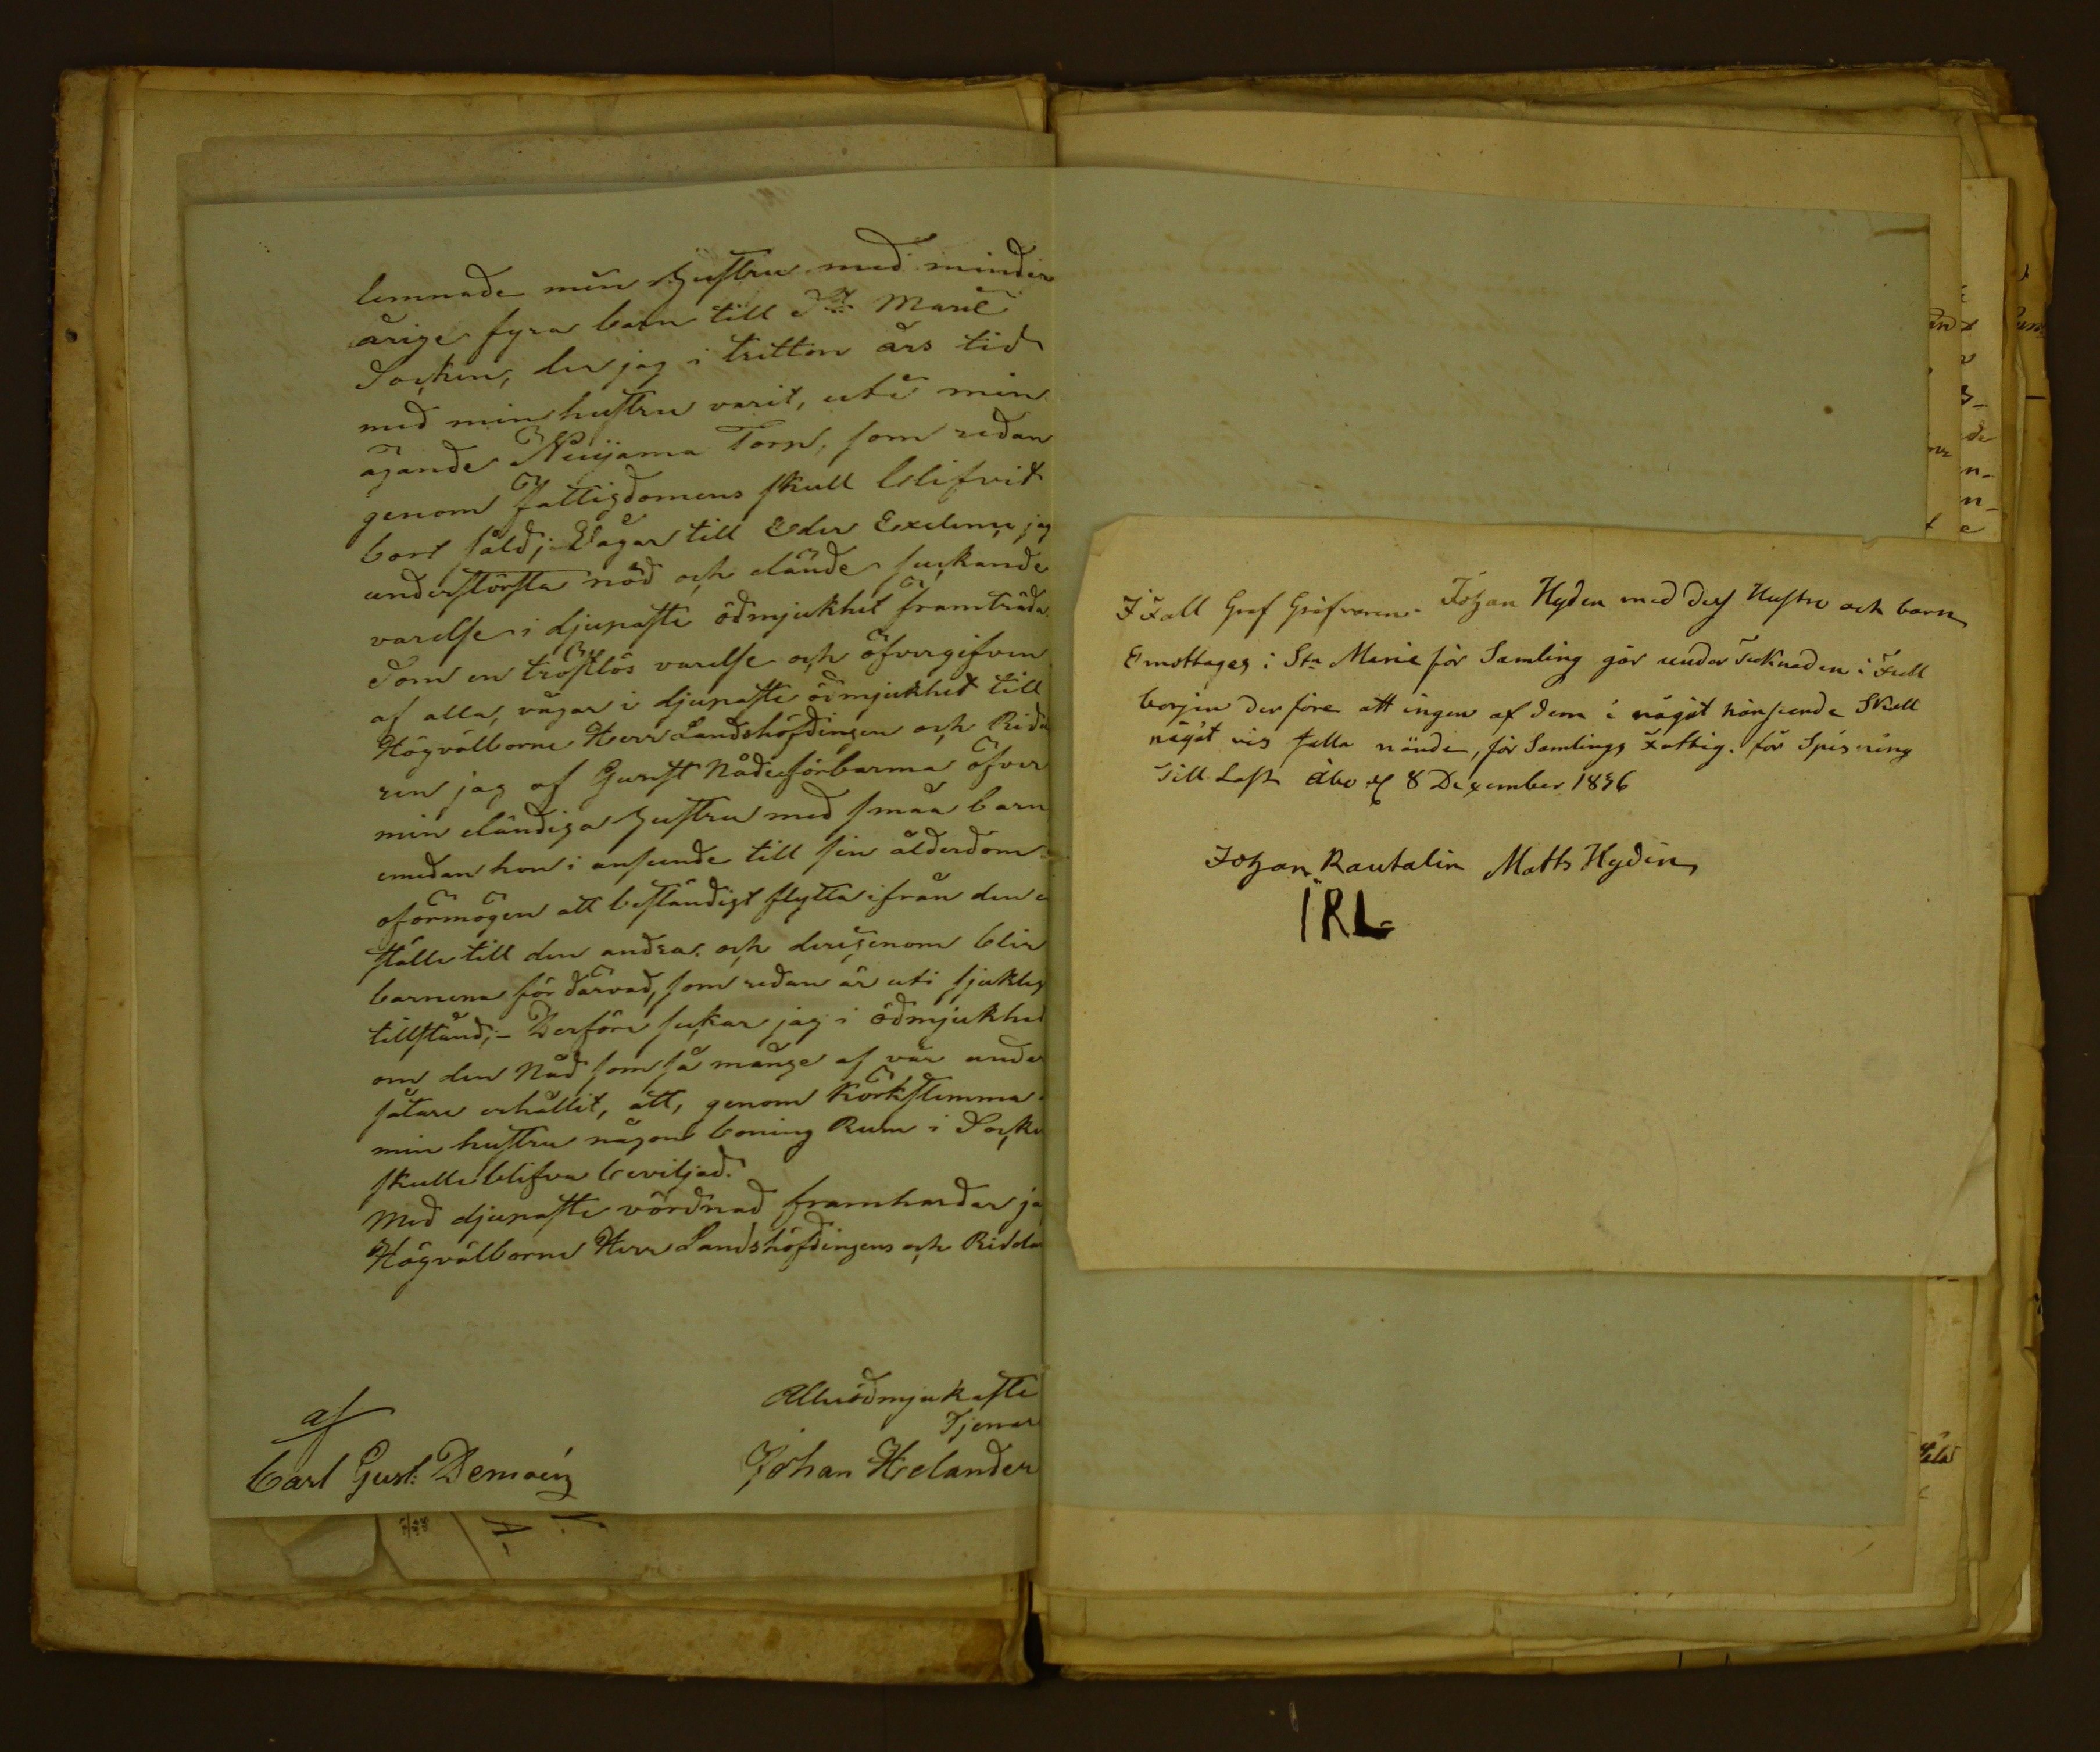 lemnade min Hustru med minder
årige fyra barn till S:t Marië
Socken, der jag i tretton års tid
med min hustru varit, uti min
ägande Niuijama Torp, som redan
genom fattigdomens skull blifvit
bort såld; Vågar till Eder Exelens jag
under största nöd och elände suckande
varelse i djupaste ödmjukhet framträda.
Som en tröstlös varelse och öfvergifven
af alla, vågar i djupaste ödmjukhet till
Högvälborne Herr Landshöfdingen och Ridda
ren jag af Gunst Nådie förbarma öfver
min eländiga Hustru med småa barn
emedan hon i anseende till sin ålderdom
oförmögen att beständigt flytta ifrån den e
ställe till den andra. och derigenom blir
barnena för därvad, som redan är uti sjuklig
tillstånd; – Derföre sukar jag i ödmjukhet
om den Nåd som så mänge af vår under
såtare erhållit, att, genom Körkstemma
min hustru någon boning Rum i Socken
skulle blifva beviljad.
Med djupaste vördnad framhardar ja
Högvälborne Herr Landshöfdingens och Ridda
Allerödmjukaste
Tjenare
Johan Helander
af
Carl Gust:
I Fall Graf Gräfvaren Johan Hyden med dess Hustru och barn
Emottages i St:a Marie för Samling går under Tecknaden i Full
borjen der före att ingen af dem i något hänseende Skall
något vis falla nände, för Samlings Fattig. för Spisning
Till Last Åbo d 8 December 1836
Johan Rautalin Matts Hydén
IRL